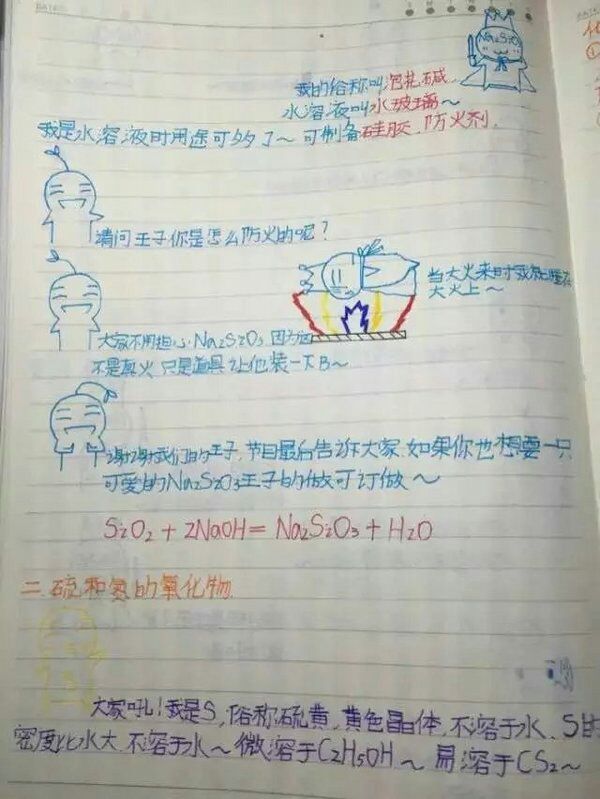 DATE
Na2SiO3
我的俗称叫泡花碱
水溶液叫水玻璃~
我是水溶液时用途可多了~可制备硅胶,防火剂.
请问王子你是怎么防火的呢?
当大火来时我就睡在
大火上~
大家不用担心Na2SiO3因为这
不是真火只是道具让他装一下B~
谢谢我们的王子,节目最后告诉大家,如果你也想要一只
可爱的Na2SiO3王子的做可订做~
SiO2+2NaOH=Na2SiO3+H2O
二.硫和氮的氧化物.
大家好!我是S,俗称硫黄,黄色晶体,不溶于水,S的
密度比水大,不溶于水~微溶于C2H5OH~易溶于CS2~